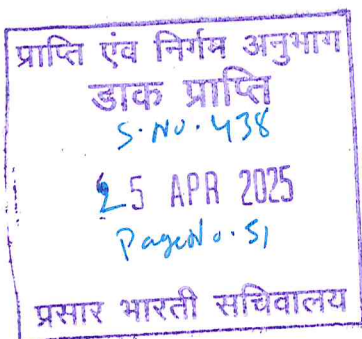 प्राप्ति एंव निर्गम अनुभाग
डाक प्राप्ति
S.No. 438
25 APR 2025
Page No. 51
प्रसार भारती सचिवालय